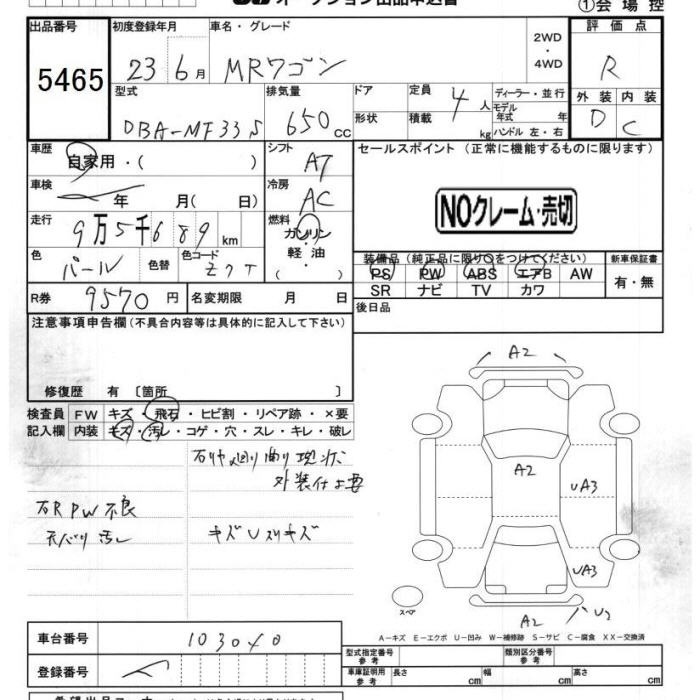 オークション出品申込書
①会場控
出品番号
5465
初度登録年月
23 6月
車名・グレード
MRワゴン
2WD
・
4WD
評価点
R
型式
DBA-MF33S
排気量
650cc
ドア
形状
定員
4人
積載
kg
ディーラー・並行
モデル
年式 年
ハンドル 左・右
外装 内装
D C
車歴
自家用・( )
シフト
AT
セールスポイント (正常に機能するものに限ります)
車検
年 月( 日)
冷房
AC
NOクレーム・売切
走行
9万5千689km
燃料
ガソリン
・
軽・油
( ・ )
色
パール
色替
色コード
Z7T
装備品(純正品に限り○をつけてください)
PS PW ABS エアB AW
SR ナビ TV カワ
新車保証書
有・無
R券
9570円
名変期限 月 日
後日品
注意事項申告欄(不具合内容等は具体的に記入して下さい)
修復歴 有〔箇所 〕
検査員
記入欄
FW キズ・飛石・ヒビ割・リペア跡・×要
内装 キズ・汚レ・コゲ・穴・スレ・キレ・破レ
曲り現状
外装仕上要
右R PW不良
天バリ汚レ
キズUスリキズ
A2
A2
UA3
UA3
A2
U2
スペア
A-キズ E-エクボ U-凹み W-補修跡 S-サビ C-腐食 XX-交換済
車台番号
103040
登録番号
型式指定番号
参考
類別区分番号
参考
車庫証明用
参考
長さ cm
幅 cm
高さ cm
希望出品コーナー